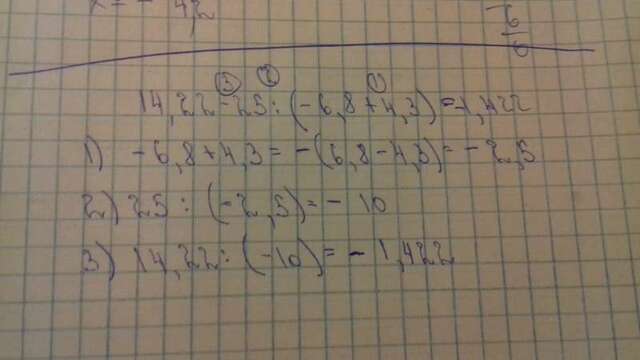 14,22 - 25 : (-6,8 + 4,3) = -1,422
1) -6,8 + 4,3 = -(6,8 - 4,3) = -2,5
2) 25 : (-2,5) = -10
3) 14,22 : (-10) = -1,422